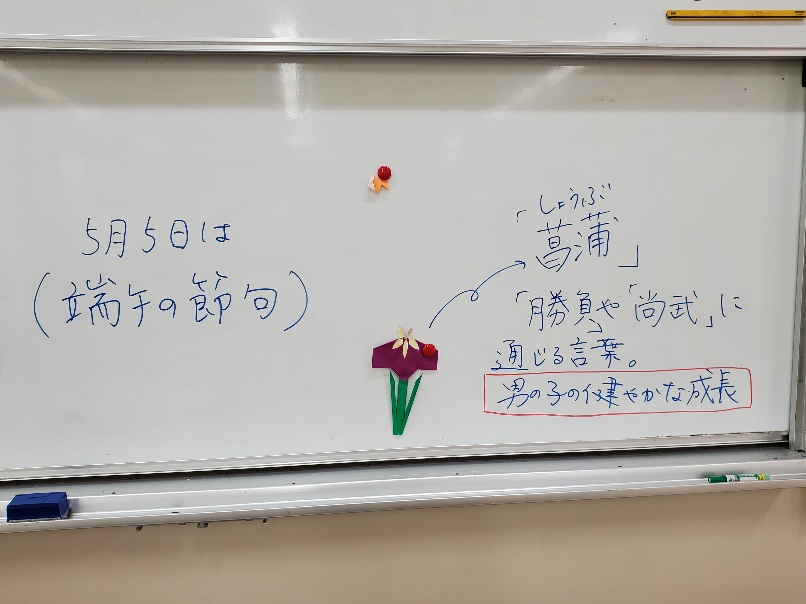 5月5日は
(端午の節句)
しょうぶ
「菖蒲」
「勝負」や「尚武」に
通じる言葉。
男の子の健やかな成長